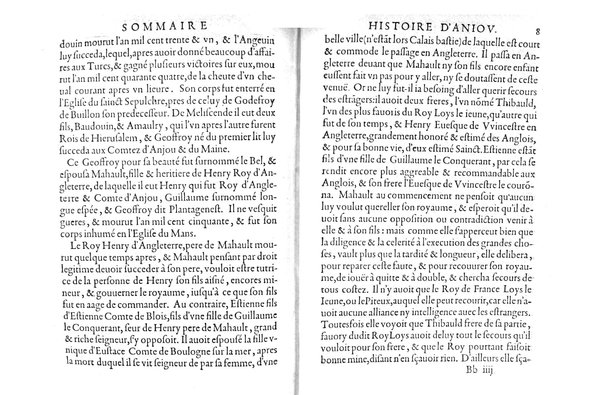 SOMMAIRE
douin mourut l'an mil cent trente & vn, & l'Angeuin
luy succeda, lequel, apres auoir donné beaucoup d'affai-
res aux Turcs, & gagné plusieurs victoires sur eux, mou
rut l'an mil cent quarante quatre, de la cheute d'vn che-
ual courant apres vn lieure. Son corps fut enterré en
l'Eglise du sainct Sepulchre, pres de celuy de Godefroy
de Buillon son predecesseur. De Meliscende il eut deux
fils, Baudouin, & Amaulry, qui l'vn apres l'autre furent
Rois de Hierusalem, & Geoffroy né du premier lit luy
succeda aux Comtez d'Anjou & du Maine.
Ce Geoffroy pour sa beauté fut surnommé le Bel, &
espousa Mahault, fille & heritiere de Henry Roy d'An-
gleterre, de laquelle il eut Henry qui fut Roy d'Angle-
terre & Comte d'Anjou, Guillaume surnommé lon-
gue espée, & Geoffroy dit Plantagenest. Il ne vesquit
gueres, & mourut l'an mil cent cinquante, & fut son
corps inhumé en l'Eglise du Mans.
Le Roy Henry d'Angleterre, pere de Mahault mou-
rut quelque temps apres, & Mahault pensant par droit
legitime deuoir succeder à son pere, voulut estre tutri-
ce de la personne de Henry son fils aisné, encores mi-
neur, & gouuerner le royaume, iusqu'à ce que son fils
fut en aage de commander. Au contraire, Estienne fils
d'Estienne Comte de Blois, fils d'vne fille de Guillaume
le Conquerant, seur de Henry pere de Mahault, grand
& riche seigneur, s'y opposoit. Il auoit espousé la fille v-
nique d'Eustace Comte de Boulogne sur la mer, apres
la mort duquel il se vit seigneur de par sa femme, d'vne
HISTOIRE D'ANIOV. 8
belle ville (n'estât lors Calais bastie) de laquelle est court
& commode le passage en Angleterre. Il passa en An-
gleterre deuant que Mahault ny son fils encore enfant
eussent fait vn pas pour y aller, ny se doutassent de ceste
venuë. Or ne luy fut-il ia besoing d'aller querir secours
des estrâgers: il auoit deux freres, l'vn nômé Thibauld,
l'vn des plus fauoris du Roy Loys le ieune, qu'autre qui
fut de son temps, & Henry Euesque de Vvincestre en
Angleterre, grandement suiui, & honoré des Anglois,
& pour sa bonne vie, d'eux estimé Sainct. Estienne estât
fils d'vne fille de Guillaume le Conquerant, par cela se
rendit encore plus aggreable & recommandable aux
Anglois, & son frere l'Euesque de Vvincestre le courô-
na. Mahault au commencement ne pensoit qu'aucun
luy voulut quereller son royaume, & esperoit qu'il de-
uoit sans aucune opposition ou contradition venir à
elle & à son fils: mais comme elle s'apperceut bien que
la diligence & la celerité à l'execution des grandes cho-
ses, vault plus que la tardité & longueur, elle delibera,
pour reparer ceste faute, & pour recouurer son royau-
me, de iouër à quitte & à double, & chercha secours de
tous costez. Il n'y auoit que le Roy de France Loys le
Ieune, ou le Piteux, auquel elle peut recourir, car elle n'a-
uoit aucune alliance ny intelligence auec les estrangers.
Toutesfois elle voyoit que Thibauld frere de sa partie,
fauory dudit Roy Loys auoit deluy tout le secours qu'il
vouloit pour son frere, & que le Roy pourtant faisoit
bonne mine, disant n'en sçauoir rien. D'ailleurs elle sça-
Bb iiij